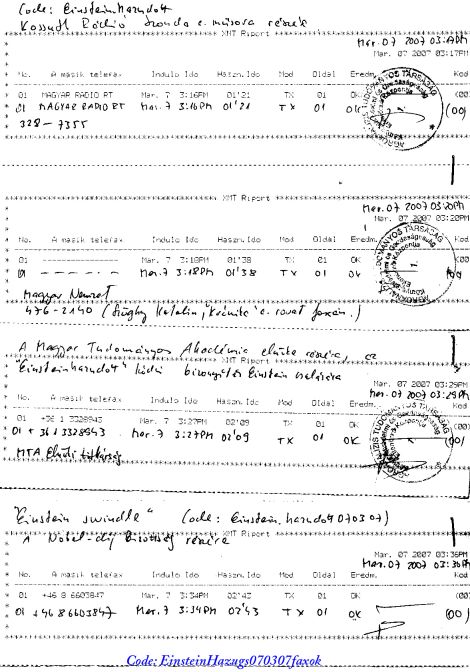 Code: Einsteinhazudott
Kossuth Rádió Szonda c. műsora részére
XMT Riport
Mar. 07 2007 03:17PM
Mar. 07 2007 03:17PM
No. A másik telefax Induló Idő Haszn. Idő Mód Oldal Eredm. Kód
01 MAGYAR RADIO RT Mar. 7 3:16PM 01'21 TX 01 OK (00)
01 MAGYAR RADIO RT Mar. 7 3:16PM 01'21 TX 01 OK (00)
328-7355
XMT Riport
Mar. 07 2007 03:20PM
Mar. 07 2007 03:20PM
No. A másik telefax Induló Idő Haszn. Idő Mód Oldal Eredm. Kód
01 ---------------- Mar. 7 3:18PM 01'38 TX 01 OK (00)
01 - - - - - - Mar. 7 3:18PM 01'38 TX 01 OK (00)
Magyar Nemzet
476-2140 ( Katalin, c. rovat faxán.)
A Magyar Tudományos Akadémia elnöke részére, az
"Einsteinhazudott" kódú bizonyíték Einstein
XMT Riport
Mar. 07 2007 03:29PM
Mar. 07 2007 03:29PM
No. A másik telefax Induló Idő Haszn. Idő Mód Oldal Eredm. Kód
01 +36 1 3328943 Mar. 7 3:27PM 02'09 TX 01 OK (00)
01 +36 1 3328943 Mar. 7 3:27PM 02'09 TX 01 OK (00)
MTA Elnöki titkárság
"Einstein swindle" (Code: Einsteinhazudott070307)
A Nobel-díj Bizottság részére
XMT Riport
Mar. 07 2007 03:36PM
Mar. 07 2007 03:36PM
No. A másik telefax Induló Idő Haszn. Idő Mód Oldal Eredm. Kód
01 +46 8 6603847 Mar. 7 3:34PM 02'43 TX 01 OK (00)
01 +46 8 6603847 Mar. 7 3:34PM 02'43 TX 01 OK (00)
Code: EinsteinHazugs070307faxok